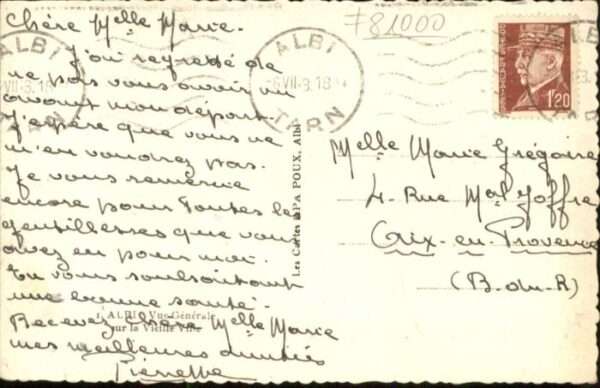 Chère Melle Marie.
J'ai regretté de
ne pas vous avoir vu
avant mon départ.
J'espère que vous ne
m'en voudrez pas.
Je vous remercie
encore pour toutes les
gentillesses que vous
avez eu pour moi.
En vous souhaitant
une bonne santé.
Recevez chère Melle Marie
mes meilleures amitiés
Pierrette
1. ALBI - Vue Générale
sur la Vieille Ville
Les Cartes d'A POUX, Albi
F81000
ALBI
TARN
ALBI
TARN
1F20
Melle Marie Grégoire
4. Rue Mal Joffre
Aix-en-Provence
(B-du-R)